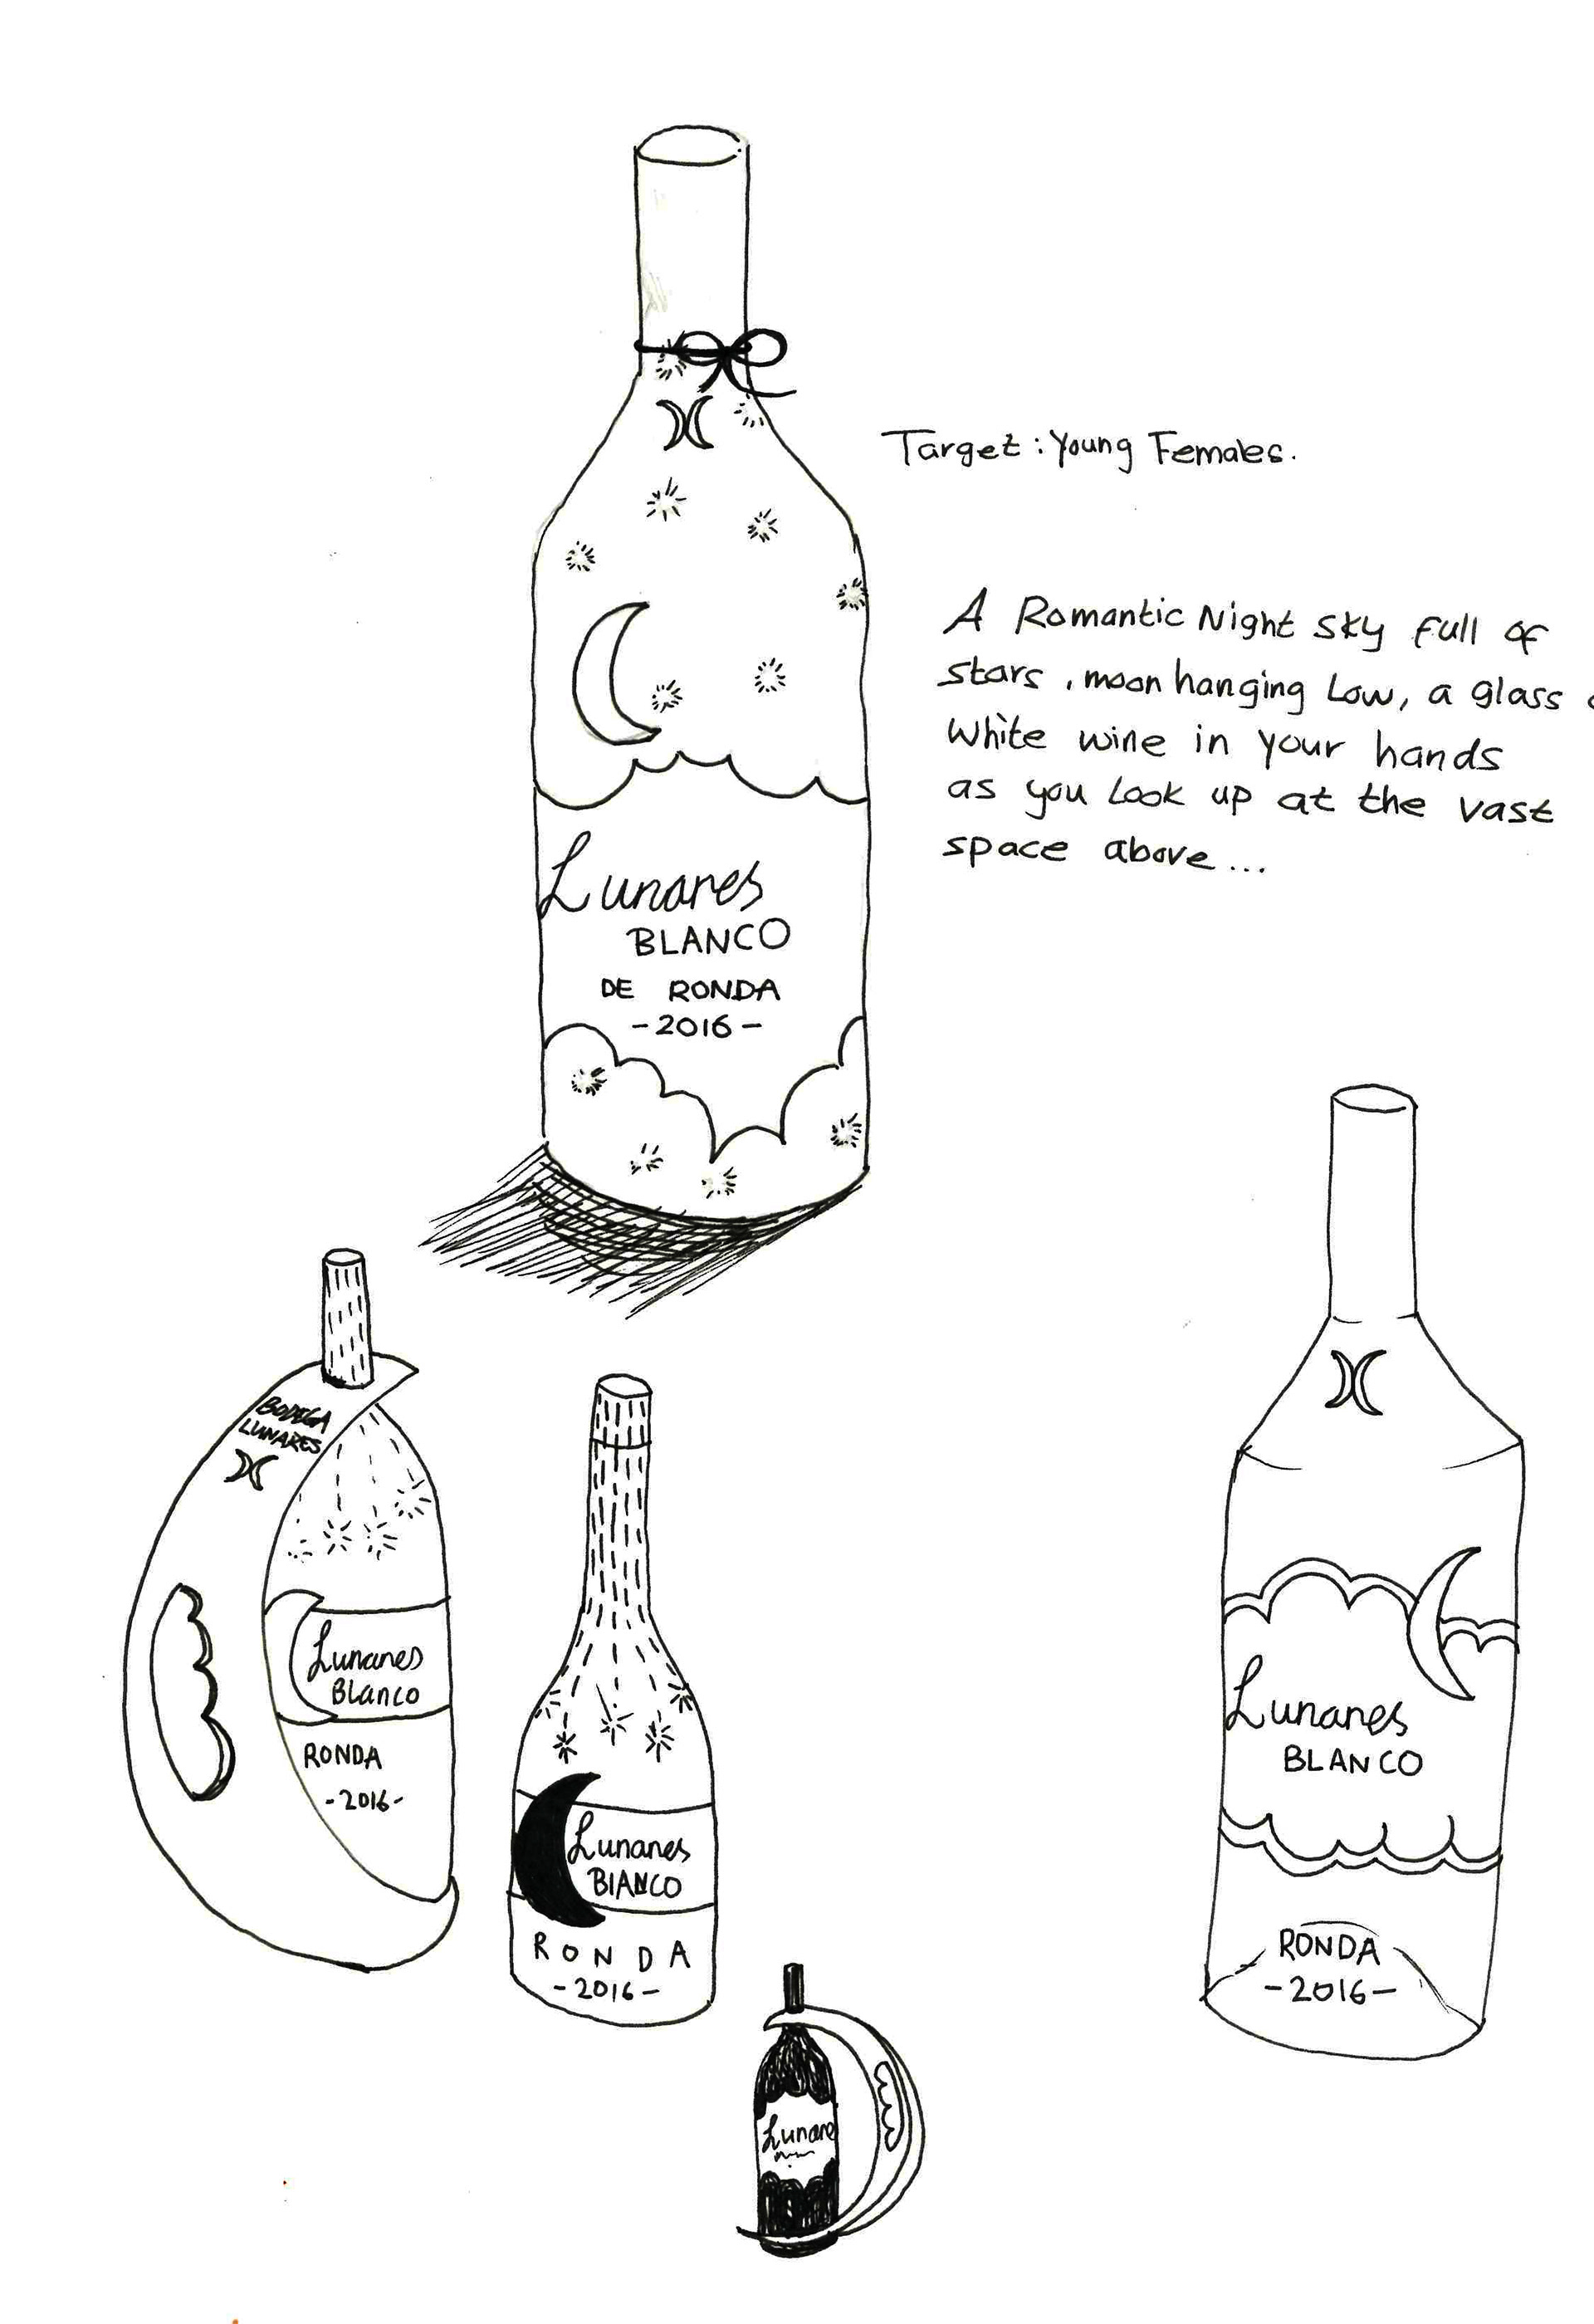 Target : Young Females.
A Romantic Night Sky full of
stars, moon hanging Low, a glass
White wine in your hands
as you Look up at the vast
space above...
Lunares
BLANCO
DE RONDA
-2016-
BODEGA
LUNARES
Lunares
Blanco
RONDA
-2016-
Lunares
BLANCO
RONDA
-2016-
Lunares
BLANCO
RONDA
-2016-
Lunare